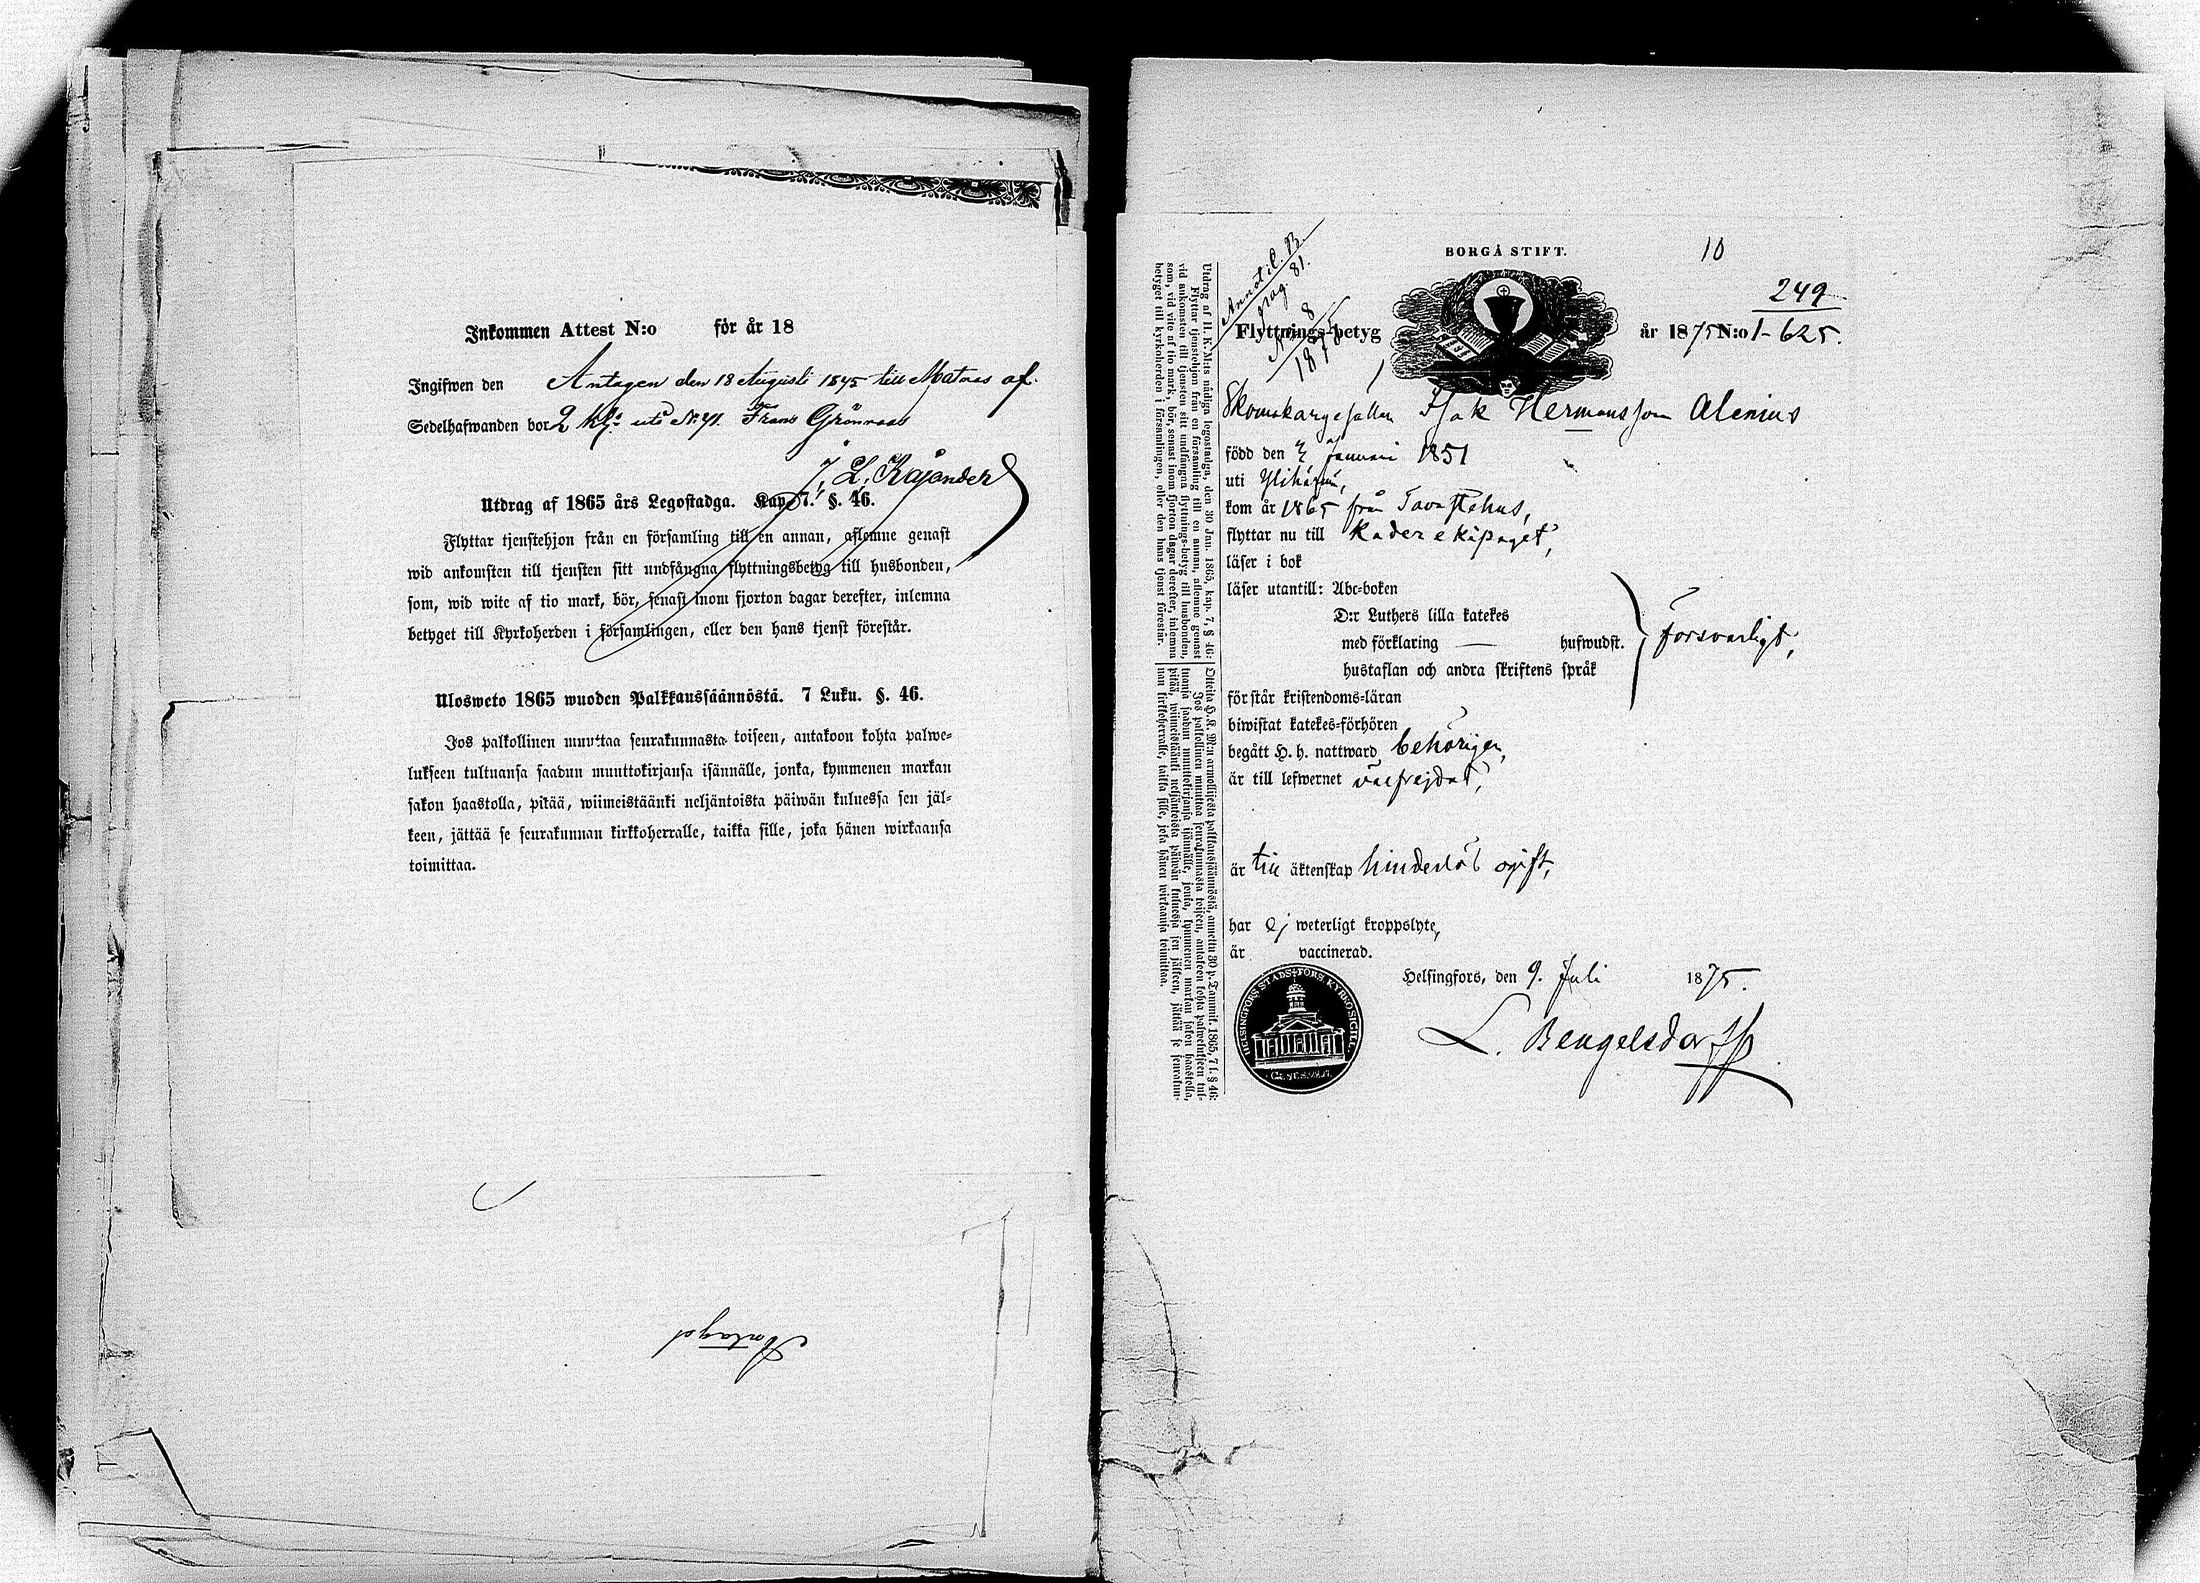 Inkommen Attest N:o för år 18
Ingifwen den Antagen den 18 Augusti 1875 till Matros af
Sedelhafwanden bor 2 Kl: uti N: 41. Frans Grönroos
J. L. Kajander
Utdrag af 1865 års Legostadga. Kap. 7. §. 46.
Flyttar tjenstehjon från en församling till en annan, aflemne genast
wid ankomsten till tjensten sitt undfångna flyttningsbetyg till husbonden,
som, wid wite af tio mark, bör, senast inom fjorton dagar derefter, inlemna
betyget till Kyrkoherden i församlingen, eller den hans tjenst förestår.
Ulosweto 1865 wuoden Palkkaussäännöstä. 7 Luku. §. 46.
Jos palkollinen muuttaa seurakunnasta toiseen, antakoon kohta palwe-
lukseen tultuansa saadun muuttokirjansa isännälle, jonka, kymmenen markan
sakon haastolla, pitää, wiimeistäänki neljäntoista päiwän kuluessa sen jäl-
keen, jättää se seurakunnan kirkkoherralle, taikka sille, joka hänen wirkaansa
toimittaa.
Antagd
BORGÅ STIFT.
10
249
Annot i l. B.
pag. 81.
No 8
1875
Flyttnings-betyg år 1875 N:o 1-625.
Skomakargesällen Isak Hermansson Alenius
född den 2 Januari 1851
uti Ylihärmä,
kom år 1865 från Tavastehus,
flyttar nu till Kaderekipaget,
läser i bok
läser utantill: Abc-boken
D:r Luthers lilla katekes
med förklaring — hufwudst.
hustaflan och andra skriftens språk
försvarligt,
förstår kristendoms-läran
biwistat katekes-förhören
begått H. h. nattward behörigen,
är till lefwernet välfrejdad,
är till äktenskap hinderlös ogift,
har ej weterligt kroppslyte,
är vaccinerad.
Helsingfors, den 9. Juli 1875.
L. Bengelsdorff
HELSINGFORS STADS FÖRS. KYRKOSIGILL
Utdrag af H. K. M:ts nådiga legostadga, den 30 Jan. 1865, kap. 7, § 46:
Flyttar tjenstehjon från en församling till en annan, aflemne genast
vid ankomsten till tjensten sitt undfångna flyttnings-betyg till husbonden,
som, vid vite af tio mark, bör, senast inom fjorton dagar derefter, inlemna
betyget till kyrkoherden i församlingen, eller den hans tjenst förestår.
Otteita H. K. M:n armollisesta palkkaussäännöstä, annettu 30 p. Tammik. 1865, 7 l. § 46:
Jos palkollinen muuttaa seurakunnasta toiseen, antakoon kohta palwelukseen tul-
tuansa saadun muuttokirjansa isännälle, jonka, kymmenen markan sakon haastolla,
pitää, wiimeistäänki neljäntoista päiwän kuluessa sen jälkeen, jättää se seurakun-
nan kirkkoherralle, taikka sille, joka hänen wirkaansa toimittaa.